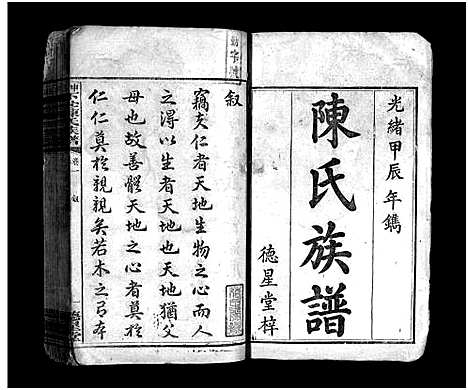 光緒甲辰年鐫
陳氏族譜
德星堂梓
叙
竊矣仁者天地生物之心而人
之得以生者天地也天地猶父
母也故善體天地之心者莫於
仁仁莫於親親矣若木之弓本